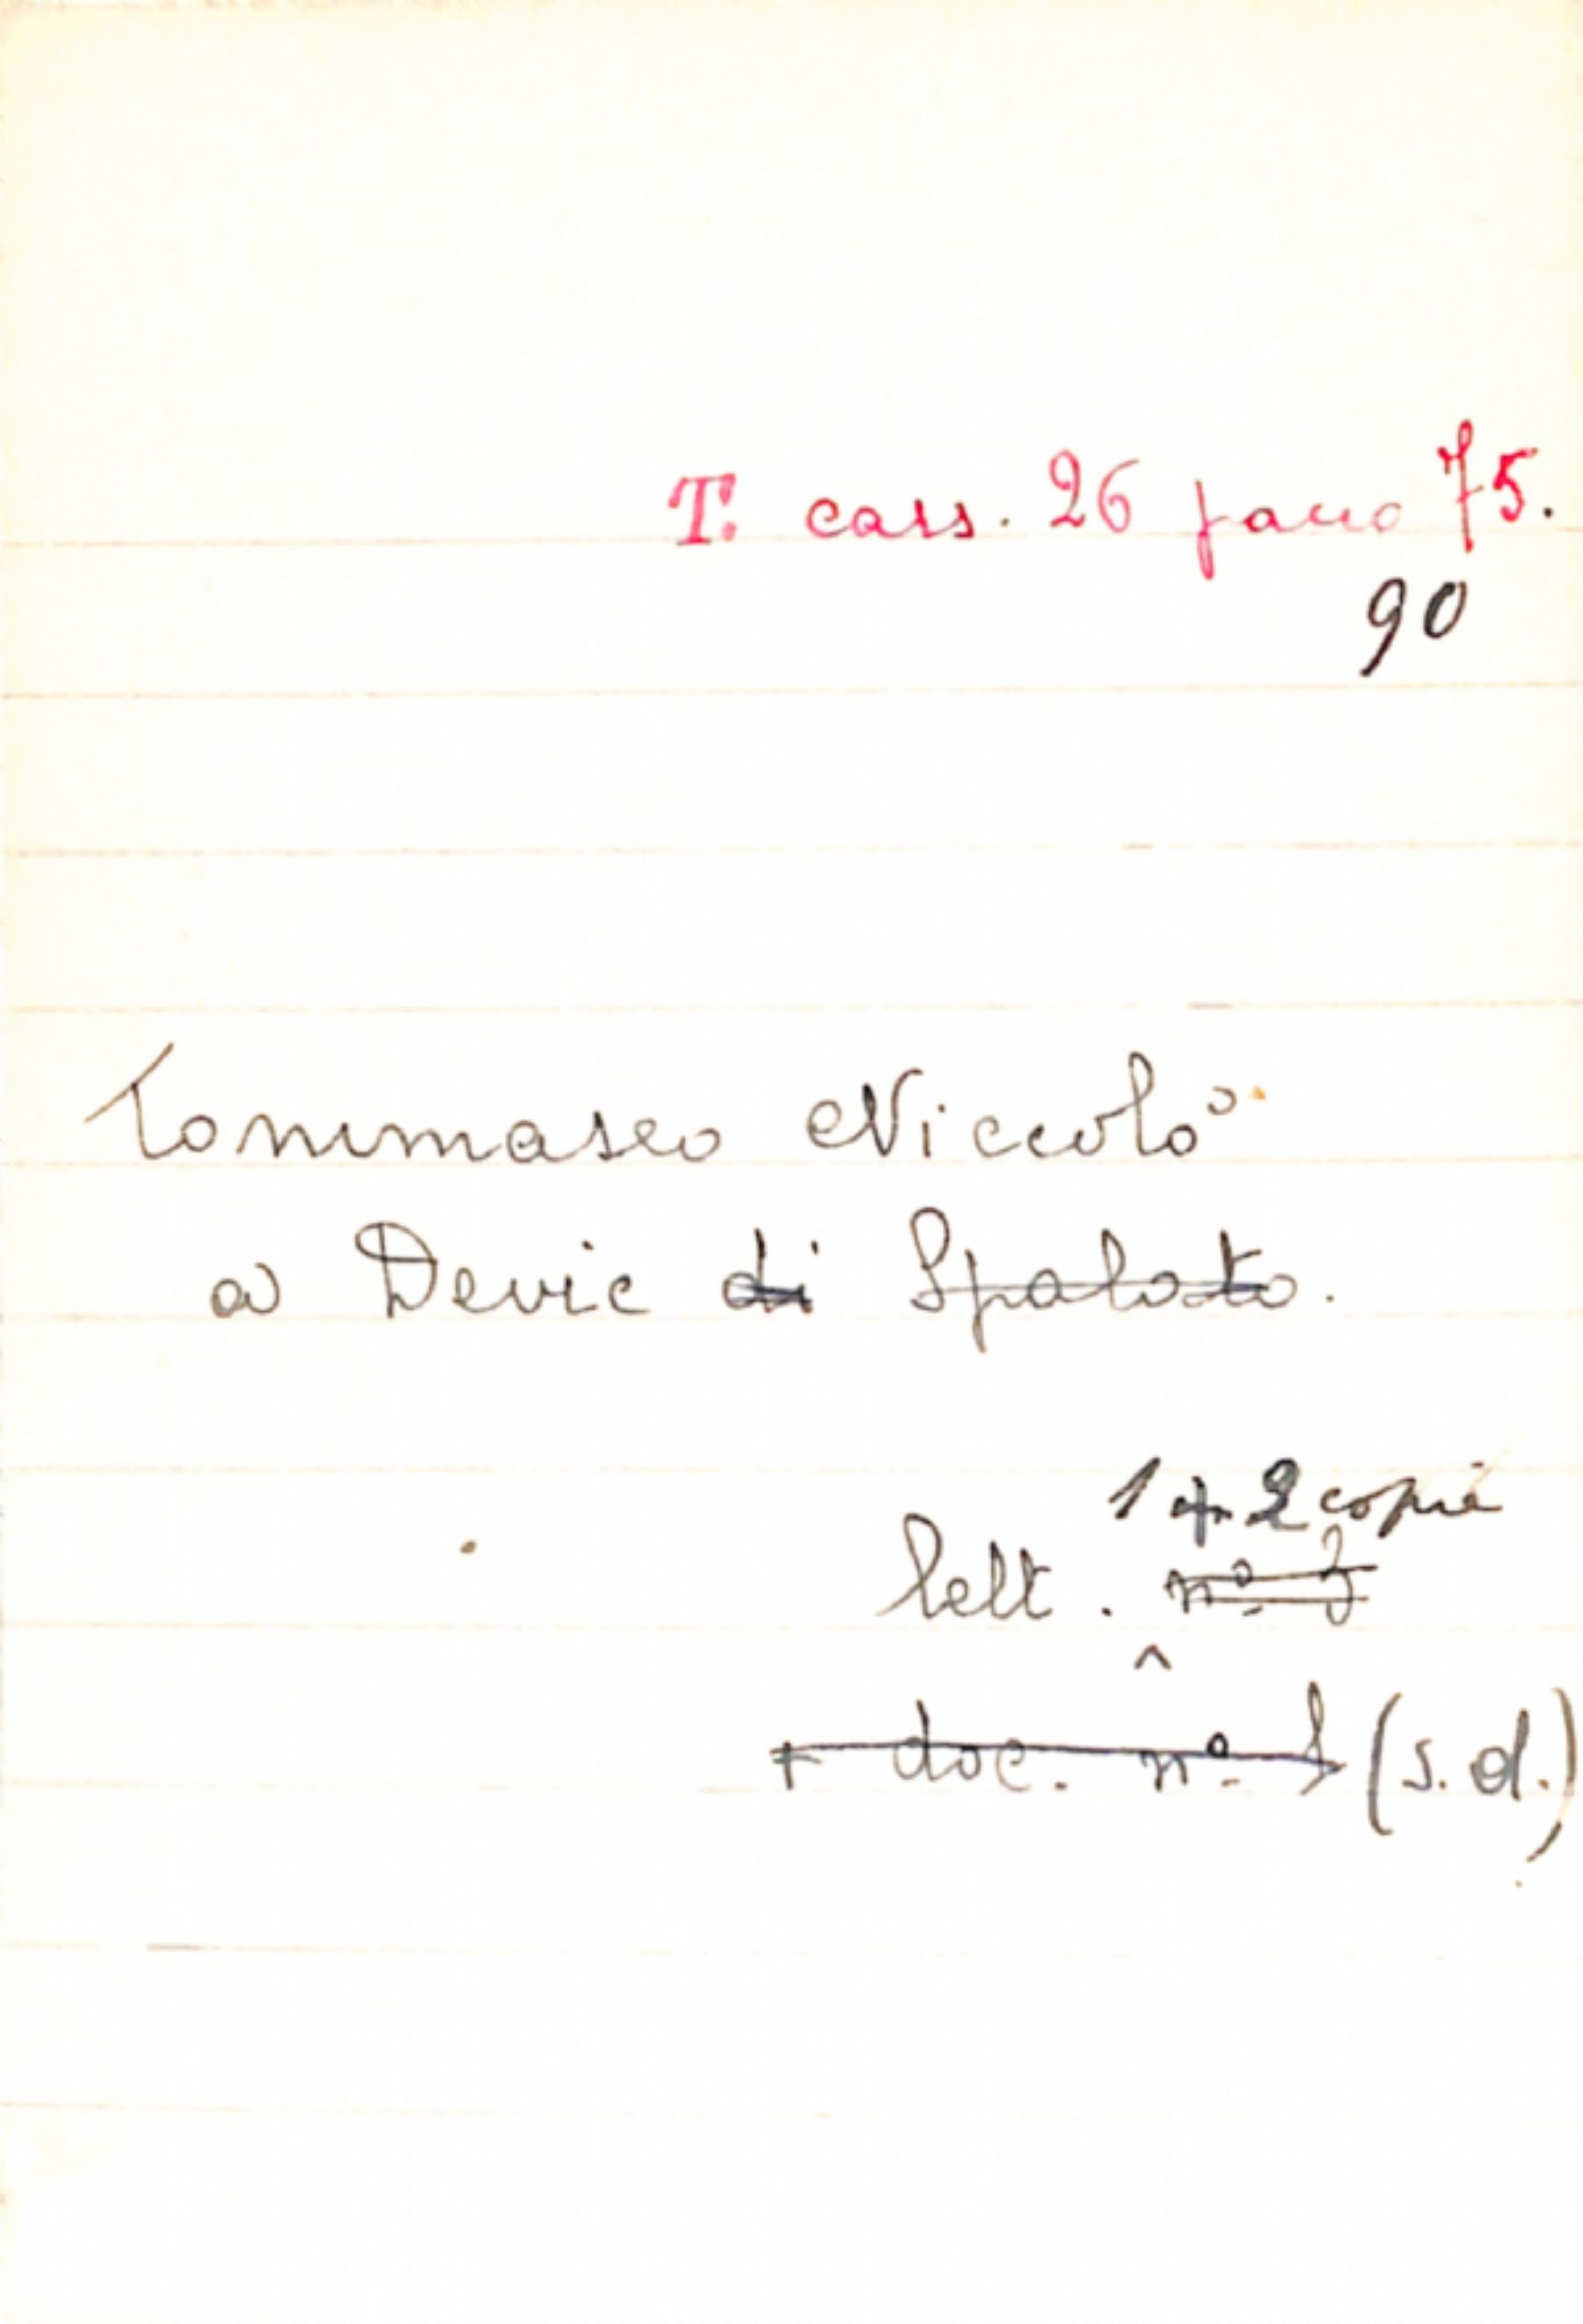 T. cass. 26 facio 75.
90
Tommaseo Niccolò
a Devic di Spalato.
1 + 2 copie
lett. nº 3
+ doc. nº 1 (s. d.)